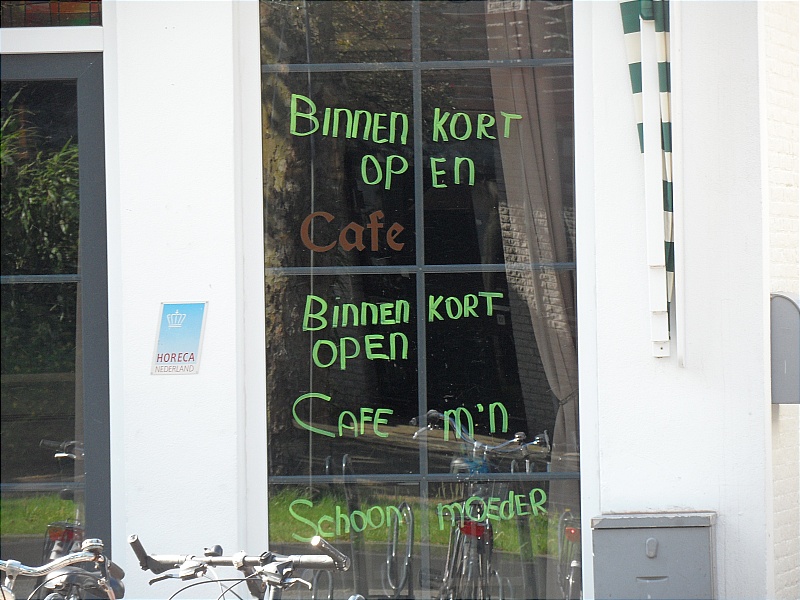 BINNEN KORT
OPEN
Cafe
BINNEN KORT
OPEN
CAFE M'N
SCHOON MOEDER
HORECA
NEDERLAND